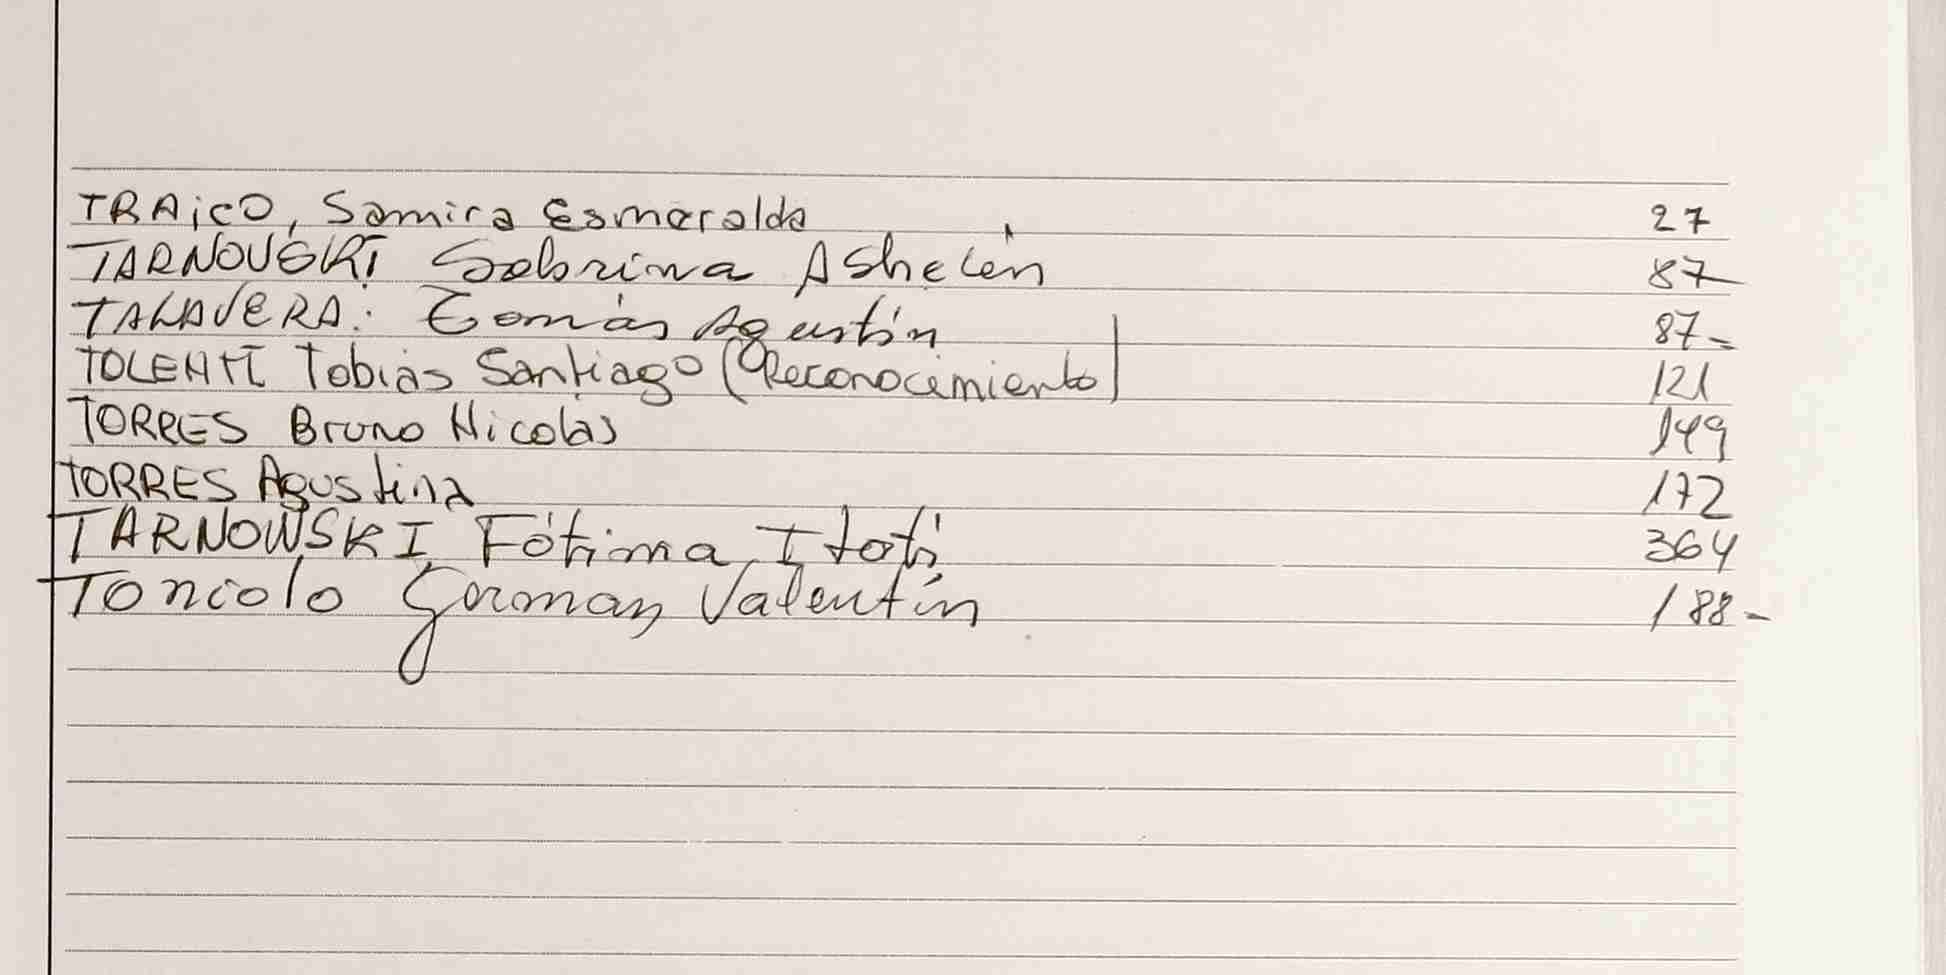 TRAiCO, Samira Esmeralda 27
TARNOUSKI Sabrina Ashelén 87
TALAVERA: Tomás Agustín 87-
TOLENTI Tobias Santiago (Reconocimiento) 121
TORRES Bruno Nicolas 149
TORRES Agustina 172
TARNOWSKI, Fátima Itatí 364
Toniolo German Valentín 188-